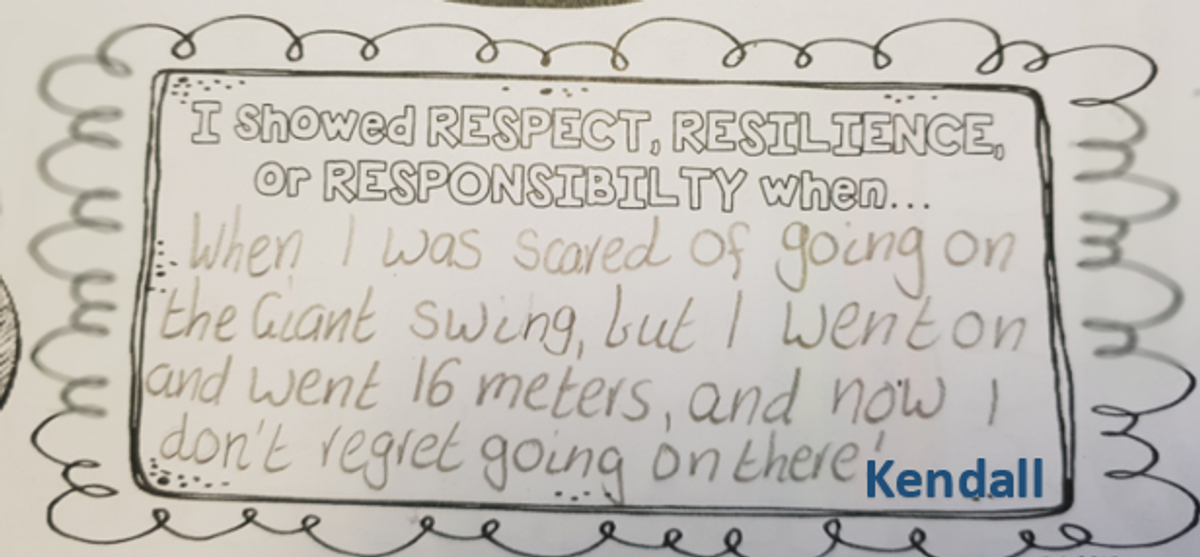 I showed RESPECT, RESILIENCE,
or RESPONSIBILTY when...
When I was scared of going on
the Giant swing, but I went on
and went 16 meters, and now I
don't regret going on there!
Kendall